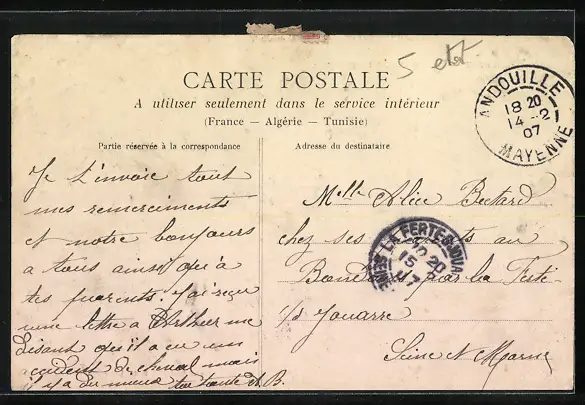 5 
CARTE POSTALE
A utiliser seulement dans le service intérieur
(France — Algérie — Tunisie)
Partie réservée à la correspondance
Adresse du destinataire
ANDOUILLE
18 20
14 -2
07
MAYENNE
Je t'envoie tout
mes remerciments
et notre bonjours
a tous ainsi qu'a
tes parents. J'ai reçu
une lettre a Arthur me
disant qu'il a eu un
accident de cheval mais
il y a du mieux ta tante A. B.
Melle Alice Butard
chez ses parents au
par la Ferté
s/s Jouarre
Seine et Marne
LA FERTE-S-JOUA
20
15